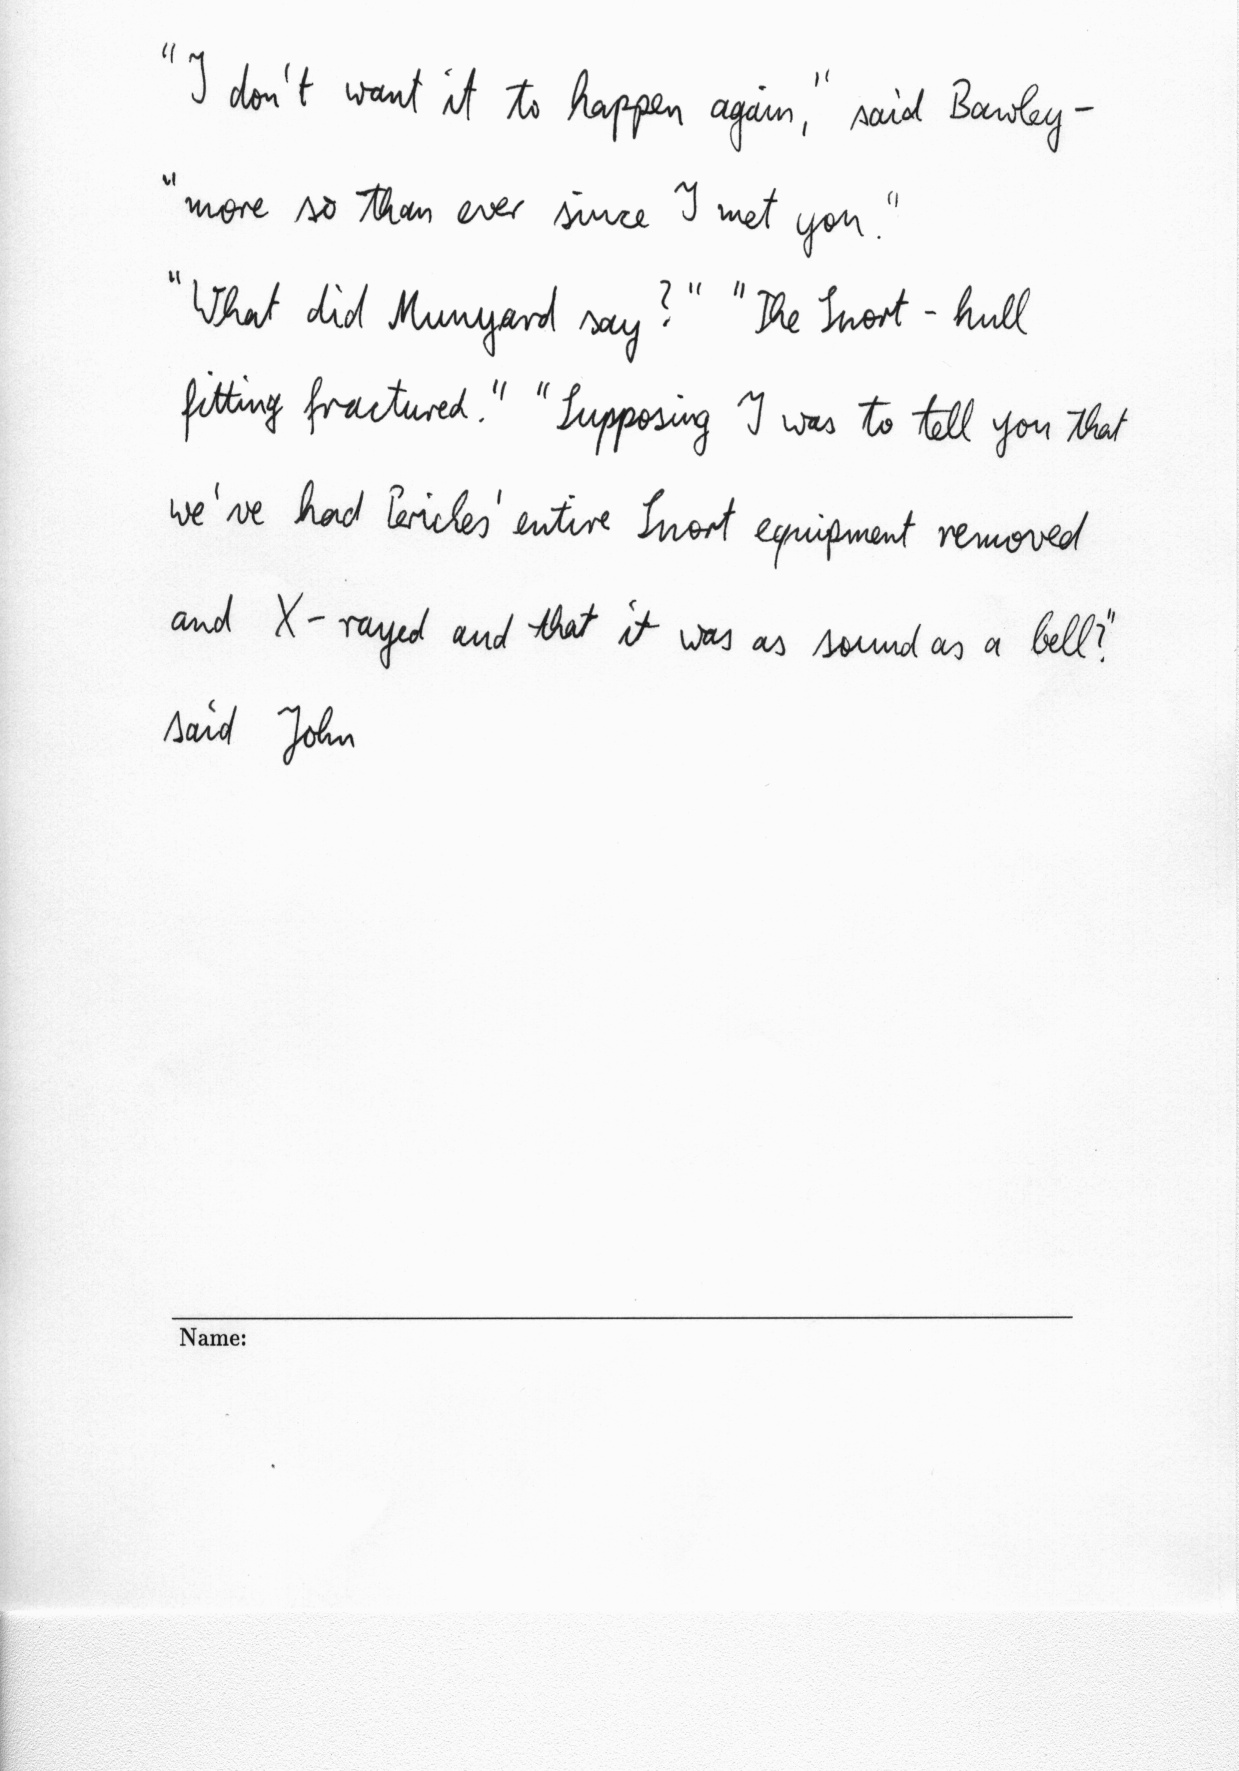 "I don't want it to happen again," said Bawley -
"more so than ever since I met you."
"What did Munyard say?" "The Snort - hull
fitting fractured." "Supposing I was to tell you that
we've had Pericles' entire Snort equipment removed
and X-rayed and that it was as sound as a bell?"
said John
Name: